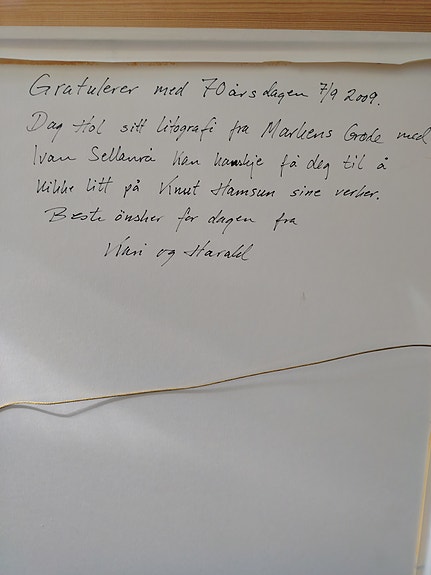 Gratulerer med 70årsdagen 7/9 2009.
Dag Hol sitt litografi fra Markens Grøde med
Ivan Sellanrå kan kanskje få deg til å
kikke litt på Knut Hamsun sine verker.
Beste ønsker for dagen fra
Kari og Harald